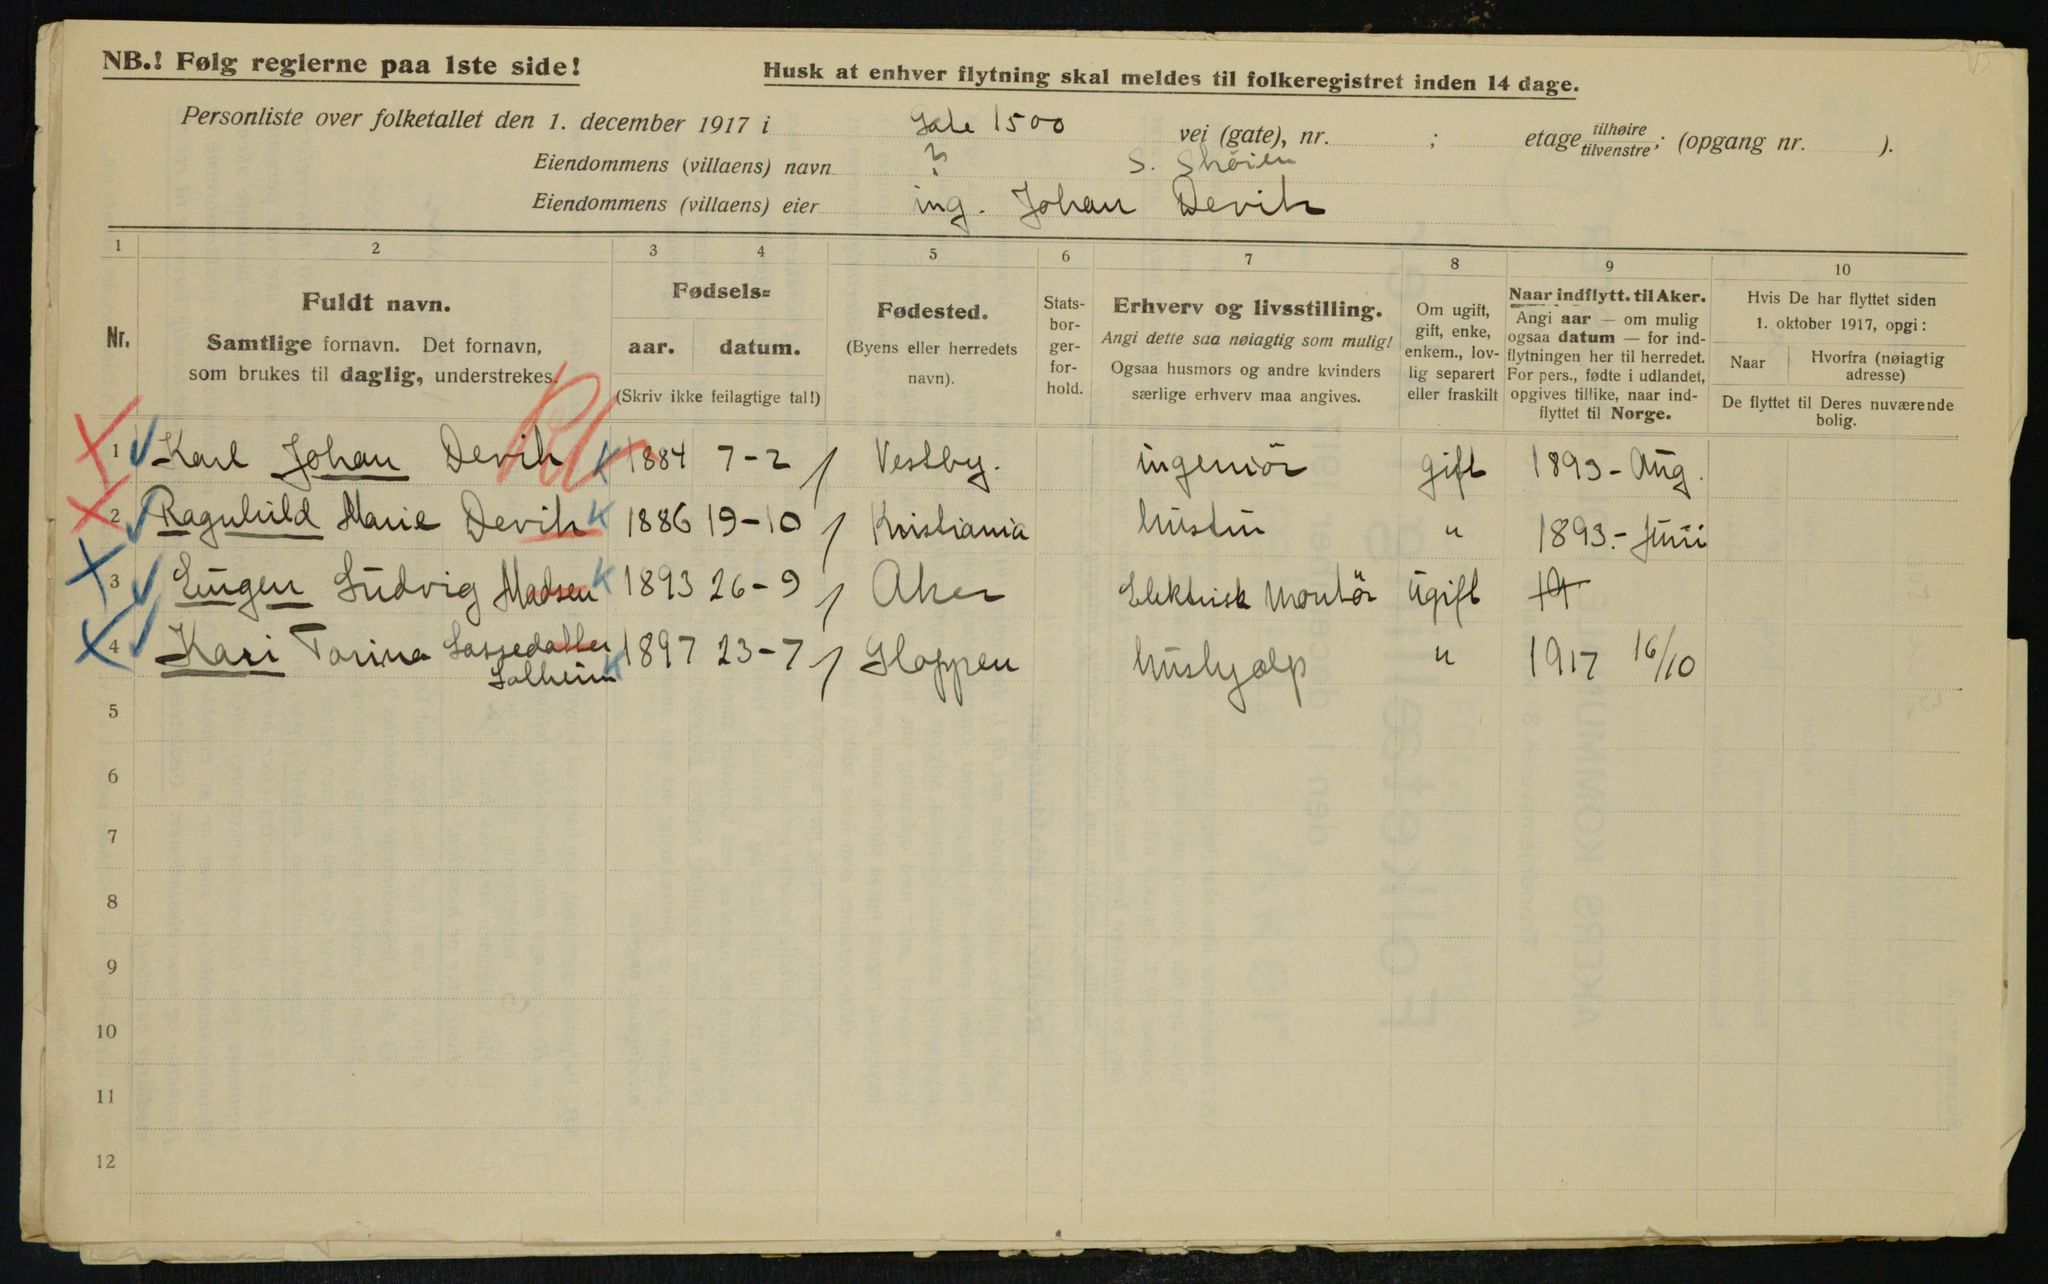 NB.! Følg reglerne paa 1ste side!
Husk at enhver flytning skal meldes til folkeregistret inden 14 dage.
Personliste over folketallet den 1. december 1917 i Gate 1500 vei (gate), nr. ; etage tilhøire tilvenstre; (opgang nr. ).
Eiendommens (villaens) navn ? S. Skøien
Eiendommens (villaens) eier ing. Johan Devik
1 2 3 4 5 6 7 8 9 10
Nr.
Fuldt navn.
Samtlige fornavn. Det fornavn,
som brukes til daglig, understrekes.
Fødsels=
aar. datum.
(Skriv ikke feilagtige tal!)
Fødested.
(Byens eller herredets
navn).
Stats-
bor-
ger-
for-
hold.
Erhverv og livsstilling.
Angi dette saa nøiagtig som mulig!
Ogsaa husmors og andre kvinders
særlige erhverv maa angives.
Om ugift,
gift, enke,
enkem., lov-
lig separert
eller fraskilt
Naar indflytt. til Aker.
Angi aar — om mulig
ogsaa datum — for ind-
flytningen her til herredet.
For pers., fødte i udlandet,
opgives tillike, naar ind-
flyttet til Norge.
Hvis De har flyttet siden
1. oktober 1917, opgi:
Naar
Hvorfra (nøiagtig
adresse)
De flyttet til Deres nuværende
bolig.
1 Karl Johan Devik K 1884 7-2 / Vestby. ingeniør gift 1893 - Aug.
2 Ragnhild Marie Devik K 1886 19-10 / Kristiania hustru " 1893.- Juni
3 Eugen Ludvig Madsen K 1893 26-9 / Aker Elektrisk Montør ugift
4 Kari Torina 1897 23-7 / Gloppen hushjælp " 1917 16/10
Solheim K
5
6
7
8
9
10
11
12